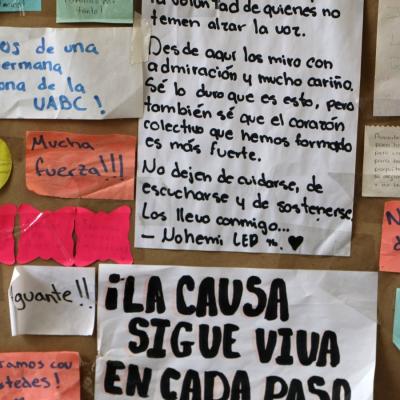 la voluntad de quienes no
temen alzar la voz.
Desde aquí los miro con
admiración y mucho cariño.
Sé lo duro que es esto, pero
también sé que el corazón
colectivo que hemos formado
es más fuerte.
No dejen de cuidarse, de
escucharse y de sostenerse
Los llevo conmigo...
— Nohemí LED
os de una
hermana
ona de la
UABC!
Mucha
fuerza!!!
Aguante!!
¡LA CAUSA
SIGUE VIVA
EN CADA PASO
ramos con
stedes!